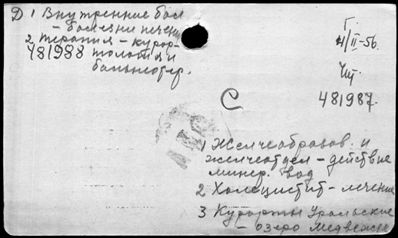 Д 1 Внутренние бол
- болезни печени
2 терапия - курор-
481988 тология и
бальнеотер.
Г.
4/II-56.
Чит.
481987.
С
1 Желчеобразов. и
желчеотдел - действие
минер. вод
2 Холецистит - лечение
3 Курорты Уральские
- озеро Медвежье